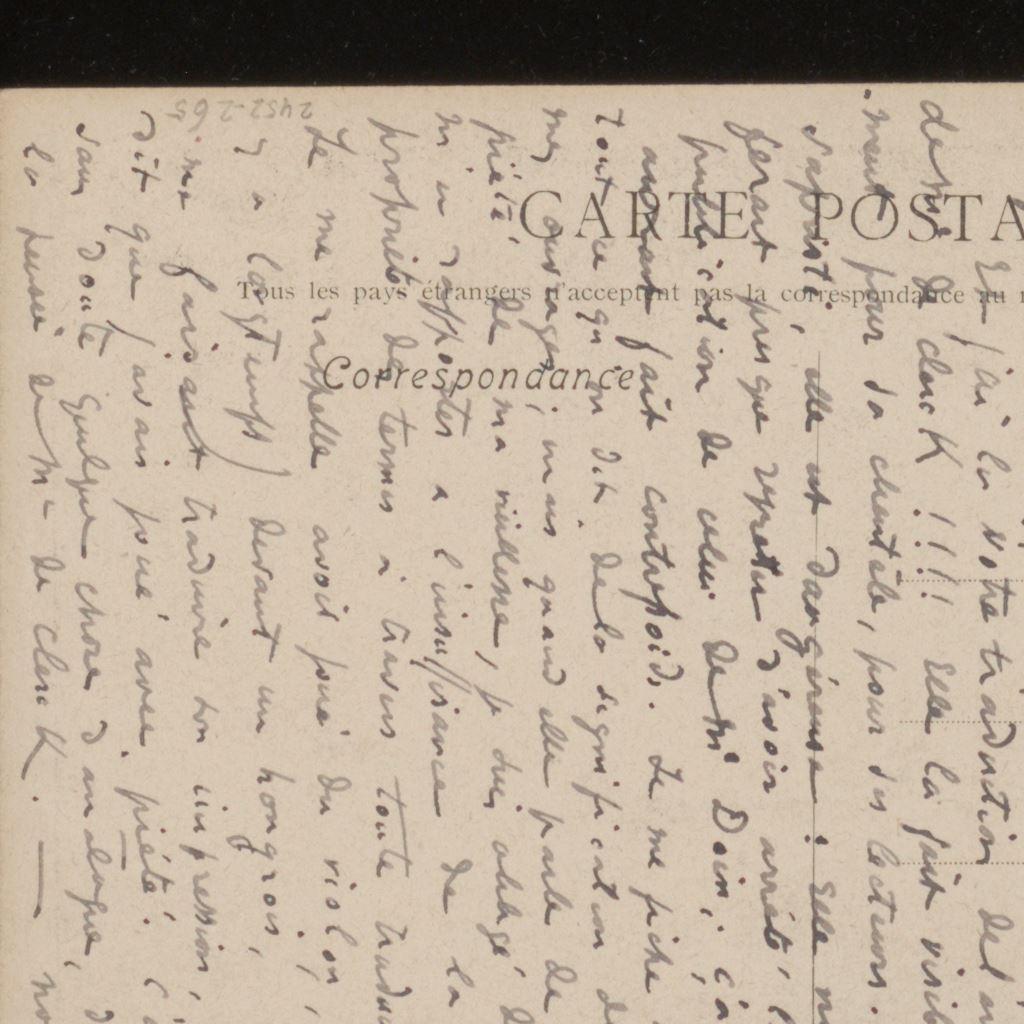 CARTE POSTA
Tous les pays étrangers n'acceptent pas la correspondance au
Correspondance
2452-265
Et j'ai lu votre traduction de
de Me De clerck !!! Elle la fait
ment pour sa clientèle, pour ses lecteurs.
elle est dangereuse. Elle
ferait presque regretter d'avoir arrêté
publication de celui de Mr Doin; ç'a
aurait fait contrepoids. Je me fiche
tout ce qu'on dit de la signification de
mes ouvrages; mais quand elle parle de
piété, de ma vieillesse, je suis obligé
m'en rapporter à l'insuffisance de la
propriété des termes à travers toute traduc
Je me rappelle avoir joué du violon,
y a longtemps) devant un hongrois,
me faisant traduire son impression,
dit que j'avais joué avec piété.
sans doute quelque chose d'analogue,
la pensée de Me de Clerck. —